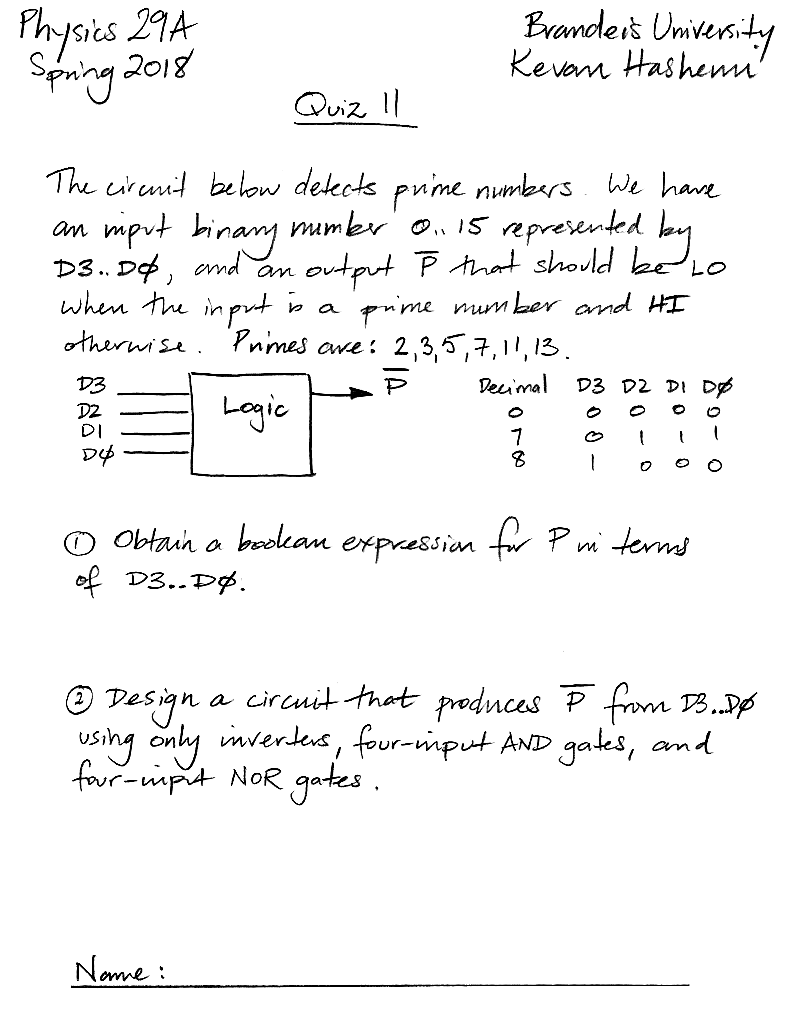 Physics 29A
Spring 2018
Brandeis University
Kevan Hashemi
Quiz 11
The circuit below detects prime numbers. We have
an input binary number 0..15 represented by
D3..DØ, and an output P̅ that should be LO
when the input is a prime number and HI
otherwise. Primes are: 2,3,5,7,11,13.
D3
D2
D1
DØ
Logic
P̅
Decimal D3 D2 D1 DØ
0 0 0 0 0
7 0 1 1 1
8 1 0 0 0
① Obtain a boolean expression for P in terms
of D3..DØ.
② Design a circuit that produces P̅ from D3..DØ
using only inverters, four-input AND gates, and
four-input NOR gates.
Name: